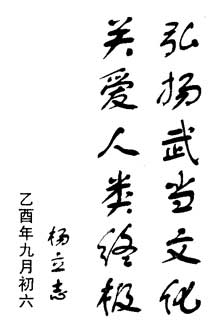 弘扬武当文化
关爱人类终极
杨立志
乙酉年九月初六